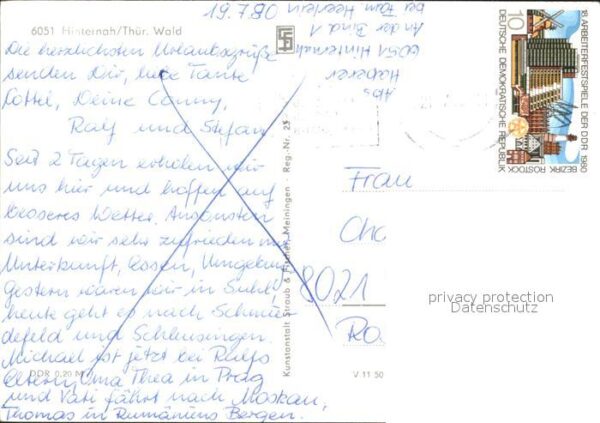 6051 Hinternah/Thür. Wald
Die herzlichsten Urlaubsgrüße
senden Dir, liebe Tante
Lottel, Deine Conny,
Ralf und Stefan
Seit 2 Tagen erholen wir
uns hier und hoffen auf
besseres Wetter. Ansonsten
sind wir sehr zufrieden mit
Unterkunft, Essen, Umgebung
gestern waren wir in Suhl,
heute geht es nach Schmie-
defeld und Schleusingen.
Michael ist jetzt bei Ralfs
Eltern, Oma Thea in Prag
und Vati fährt nach Moskau,
Thomas in Rumäniens Bergen.
DDR 0,20 M
Kunstanstalt Straub & Fischer, Meiningen - Reg.-Nr. 25
V 11 50
Abs.
Haberer
6051 Hinternah
An der Bind 1
bei Fam. Heerlein
19.7.80
10
18. ARBEITERFESTSPIELE DER DDR 1980
DEUTSCHE DEMOKRATISCHE REPUBLIK
BEZIRK ROSTOCK
Frau
8021
privacy protection
Datenschutz